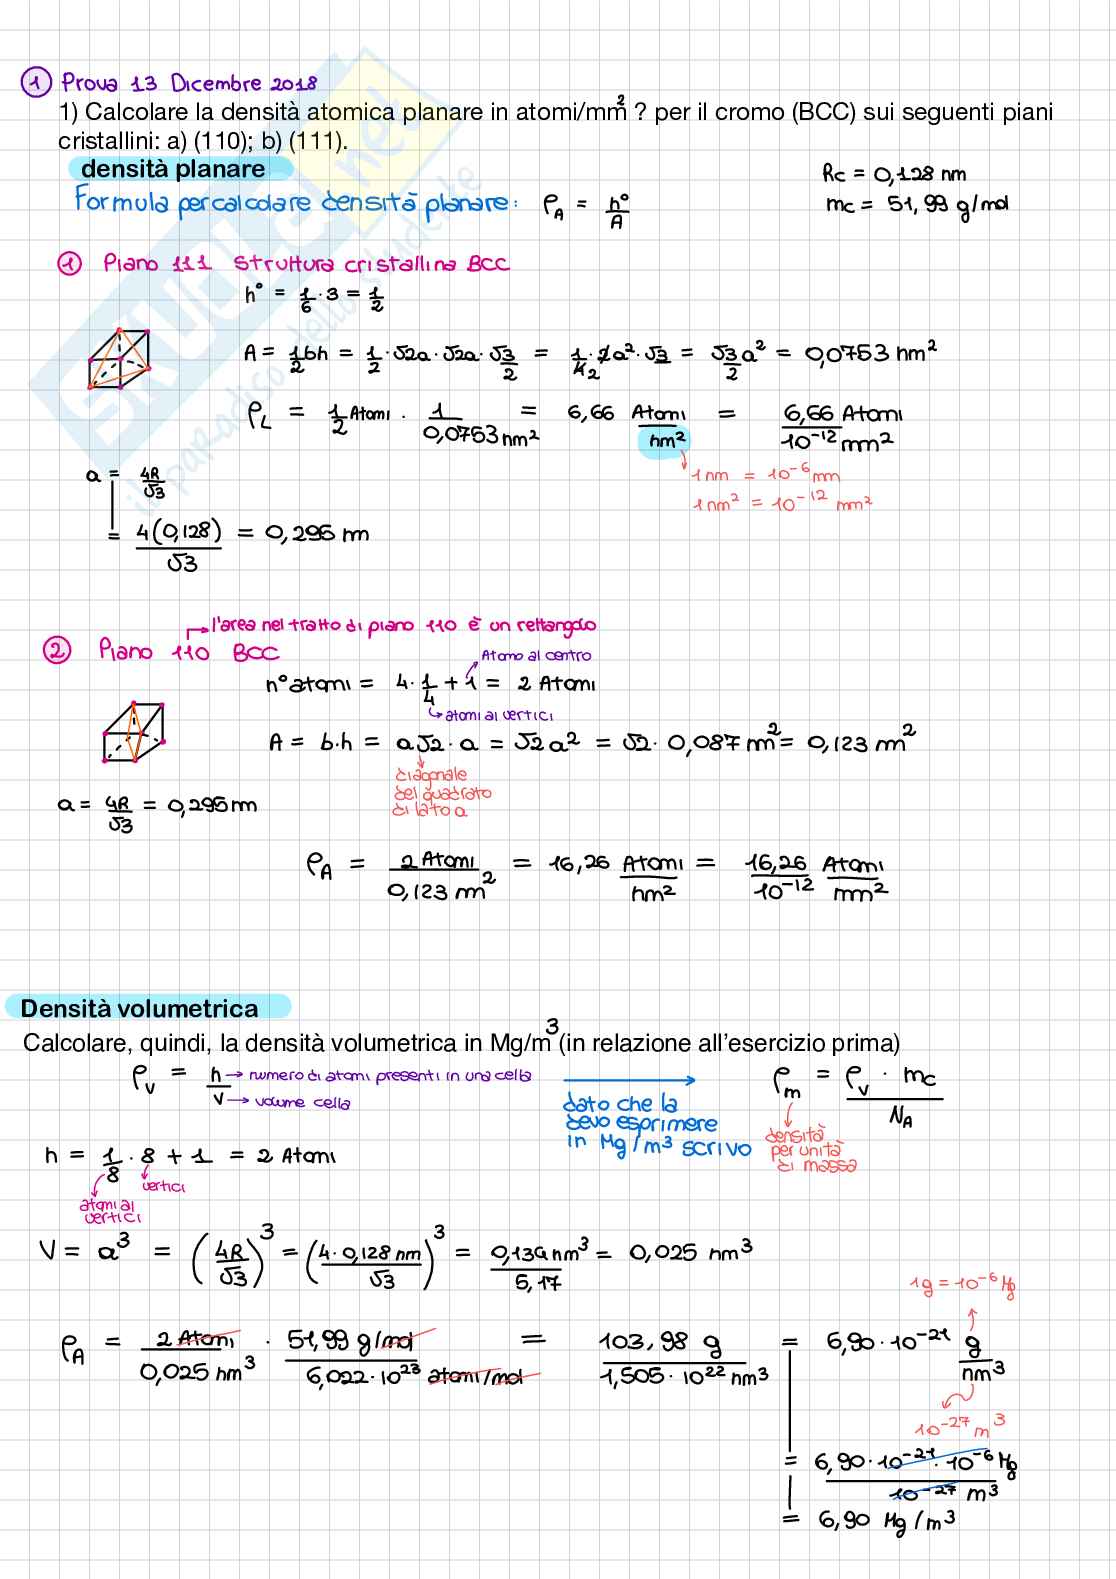 1 Prova 13 Dicembre 2018
1) Calcolare la densità atomica planare in atomi/mm² ? per il cromo (BCC) sui seguenti piani
cristallini: a) (110); b) (111).
densità planare
Rc = 0,128 nm
Formula per calcolare densità planare: ρA = n°/A
mc = 51,99 g/mol
1 Piano 111 struttura cristallina BCC
n° = 1/6 · 3 = 1/2
A = 1/2 bh = 1/2 · √2a · √2a · √3/2 = 1/42 · 2a² · √3 = √3/2 a² = 0,0753 nm²
ρL = 1/2 Atomi · 1/0,0753 nm² = 6,66 Atomi/nm² = 6,66 Atomi/10⁻¹² mm²
1 nm = 10⁻⁶ mm
1 nm² = 10⁻¹² mm²
a = 4R/√3
= 4(0,128)/√3 = 0,295 nm
l'area nel tratto di piano 110 è un rettangolo
2 Piano 110 BCC
Atomo al centro
n° atomi = 4 · 1/4 + 1 = 2 Atomi
atomi ai vertici
A = b·h = a√2 · a = √2 a² = √2 · 0,087 nm² = 0,123 nm²
diagonale
del quadrato
di lato a
a = 4R/√3 = 0,295 nm
ρA = 2 Atomi/0,123 nm² = 16,26 Atomi/nm² = 16,26/10⁻¹² Atomi/mm²
Densità volumetrica
Calcolare, quindi, la densità volumetrica in Mg/m³ (in relazione all'esercizio prima)
ρv = n/V
numero di atomi presenti in una cella
volume cella
dato che la
devo esprimere
in Mg/m³ scrivo
ρm = ρv · mc/NA
densità
per unità
di massa
n = 1/8 · 8 + 1 = 2 Atomi
vertici
atomi ai
vertici
V = a³ = (4R/√3)³ = (4 · 0,128 nm/√3)³ = 0,139 nm³/5,17 = 0,025 nm³
1g = 10⁻⁶ Mg
ρA = 2 Atomi/0,025 nm³ · 51,99 g/mol/6,022 · 10²³ atomi/mol = 103,98 g/1,505 · 10²² nm³ = 6,90 · 10⁻²¹ g/nm³
10⁻²⁷ m³
= 6,90 · 10⁻²¹ · 10⁻⁶ Mg/10⁻²⁷ m³
= 6,90 Mg/m³
SKUOLA.net
il paradiso dello studente